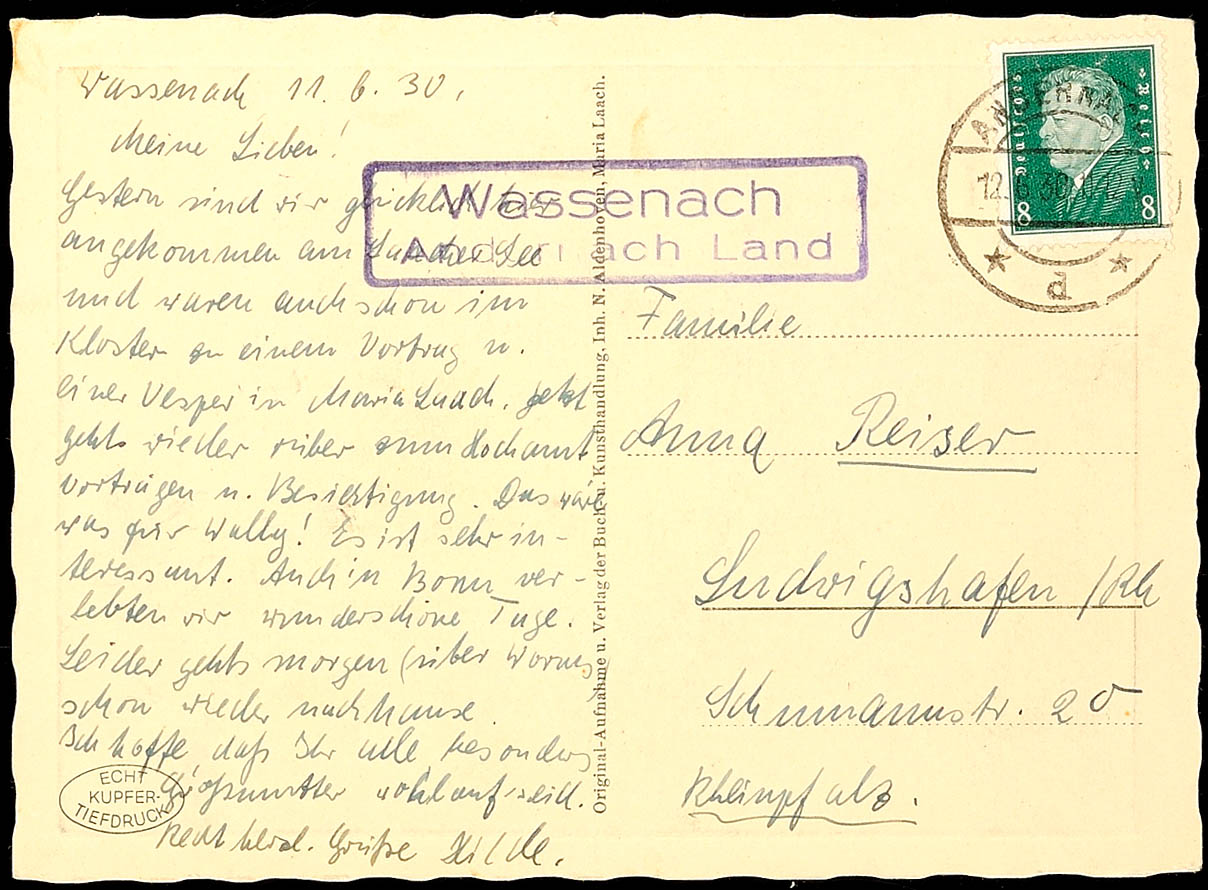 Wassenach 11.6.30.
Meine Lieben!
Gestern sind wir glücklich hier
angekommen am Laacher See
und waren auch schon im
Kloster zu einem Vortrag u.
einer Vesper in Maria Laach. Jetzt
gehts wieder rüber zum Hochamt
Vorträgen u. Besichtigung. Das wäre
was für Wally! Es ist sehr in-
teressant. Auch in Bonn ver-
lebten wir wunderschöne Tage.
Leider gehts morgen (über Worms
schon wieder nachhause.
Ich hoffe, daß Ihr alle, besonders
Großmutter wohlauf seid.
Recht herzl. Grüße Hilde.
ECHT
KUPFER-
TIEFDRUCK
Wassenach
Andernach Land
Original-Aufnahme u. Verlag der Buch- u. Kunsthandlung, Inh. N. Aldenhoven, Maria Laach.
Deutsches Reich
8 8
ANDERNACH
12.6.30
d
Familie
Anna Reiser
Ludwigshafen /Rh
Schumannstr. 20
Rheinpfalz.